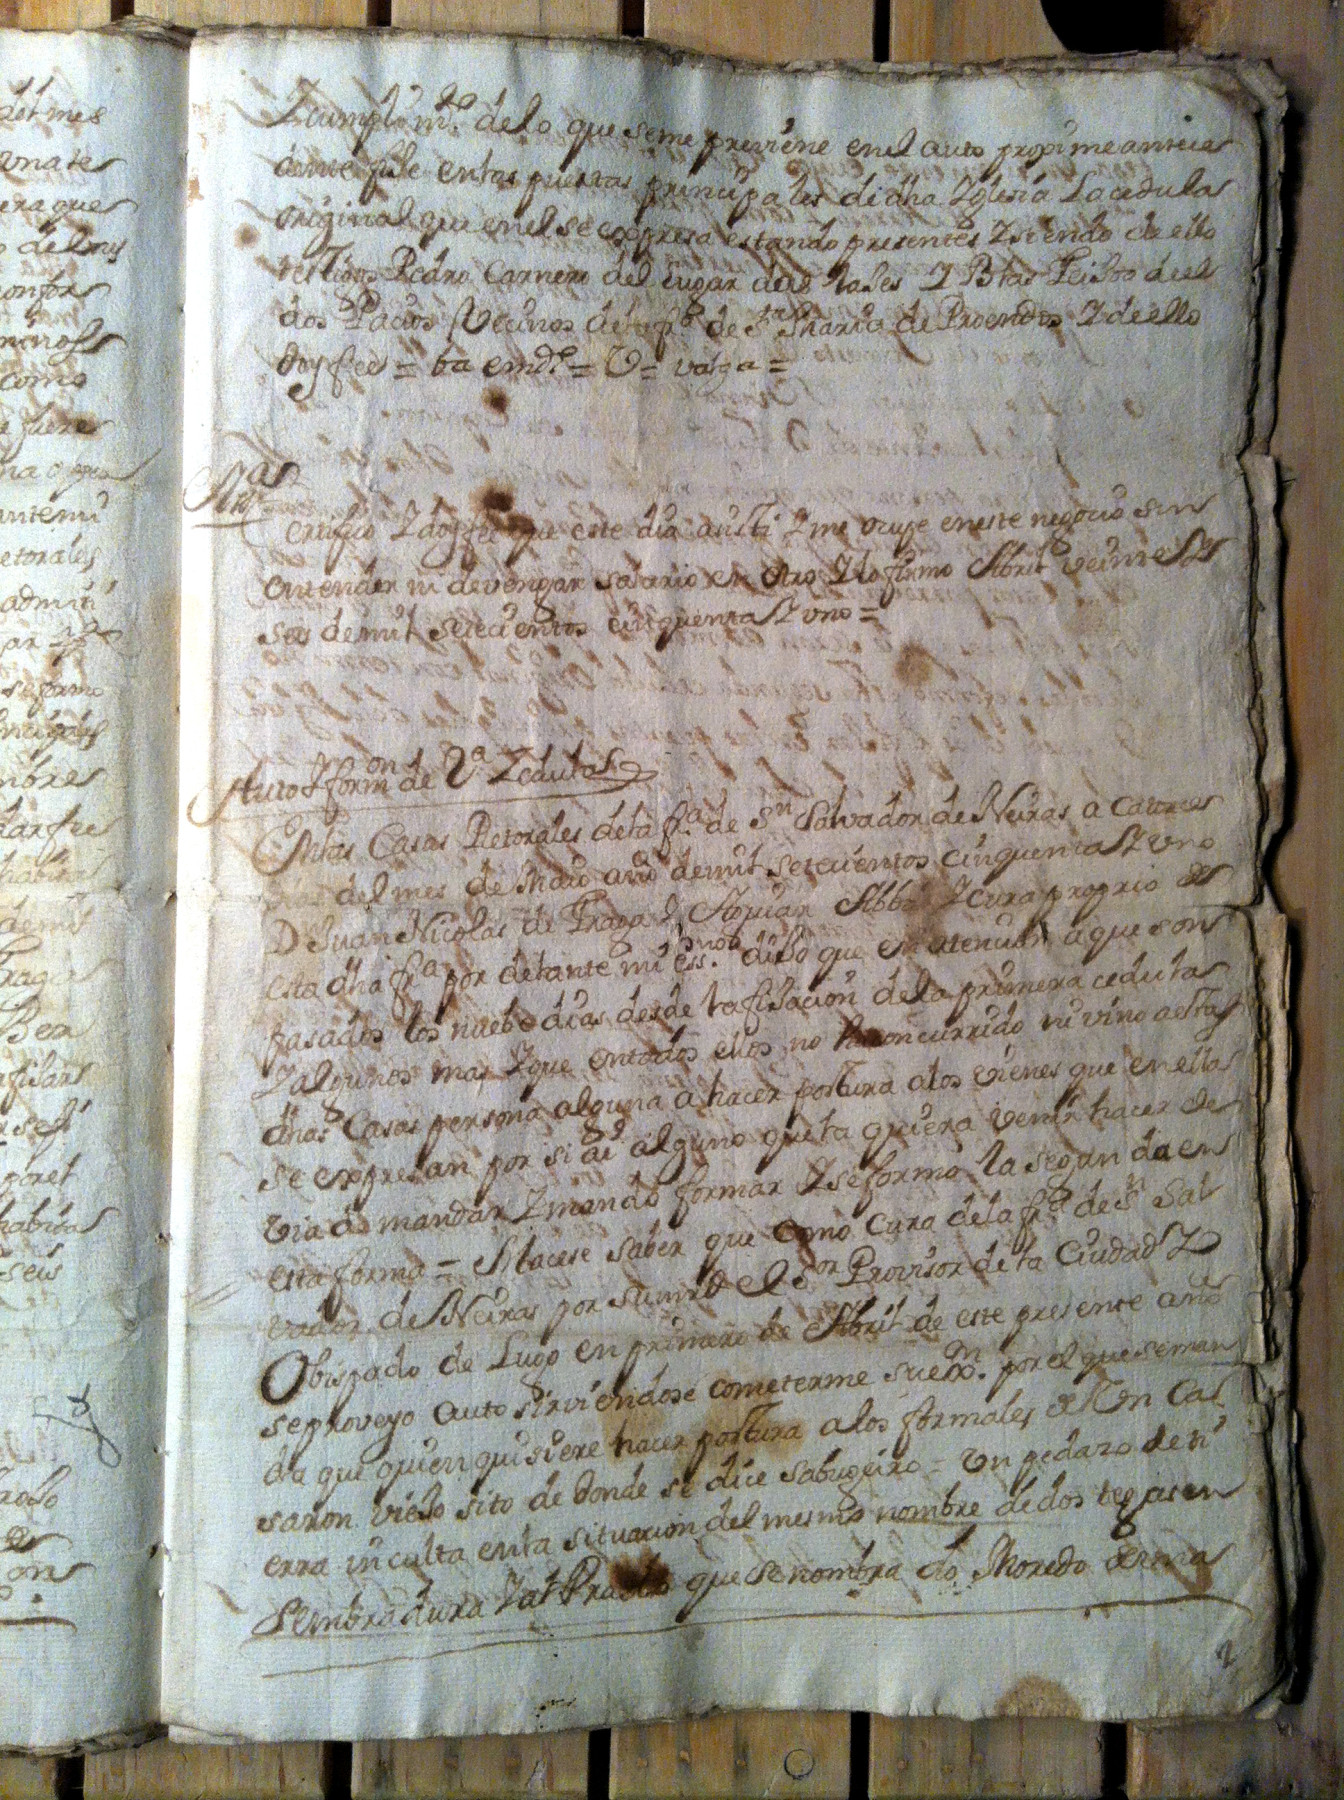 Zcumplim.to delo que seme previene enel auto proximeantece
dente fije entas puertas principales de dha Yglesia La cedula
original que enel se expresa estando presentes Ysiendo de ello
testigos Pedro Carnero del lugar de Y Blas Teijo del
dos Pacios Vecinos deta fra de Sta Maria de Proendos Y deello
doy fee = ba emdo = V = valga =
ertifico Y doy fee que este dia asisti Y me ocupe eneste negocio sin
entender ni devengar salario en otro Y lo firmo Abril veinte Y
seis demil setecientos cinquenta Y uno =
Auto Y formon de 2a Zedula
Entas Casas Retorales deta fra de Sn Salvador de Neiras a catorce
dias del mes de Maio año demil setecientos cinquenta Y uno
D Juan Nicolas de Fraga Y Aguiar Abbad Y cura proprio de
esta dha fra por delante mi ess.no dijo que en atencion a que son
pasados los nuebe dias desde la fijacion dela primera cedula
Y algunos mas Y que entodos ellos no ha concurrido ni vino aesta
dhas Casas persona alguna a hacer postura alos vienes que enella
se expresan por si ai alguno queta quiera venir hacer de
via de mandar Y mando formar Y se formo la segunda en
esta forma = Hacese saber que como Cura dela fra de Sn Sal
vador de Neiras por sumrd el Sor Provisor deta Ciudad Y
Obispado de Lugo en primero de Abril de este presente año
seproveyo auto sirviendose cometerme su exon. por el que seman
da que quien quisiere hacer postura alos formales de Un Ca
saron viejo sito de donde se dice Sabugeiro = Un pedazo de ti
erra inculta enta situacion del mesmo nombre de dos tegas en
sembradura Y al Prado que senombra do Moredo demas
2